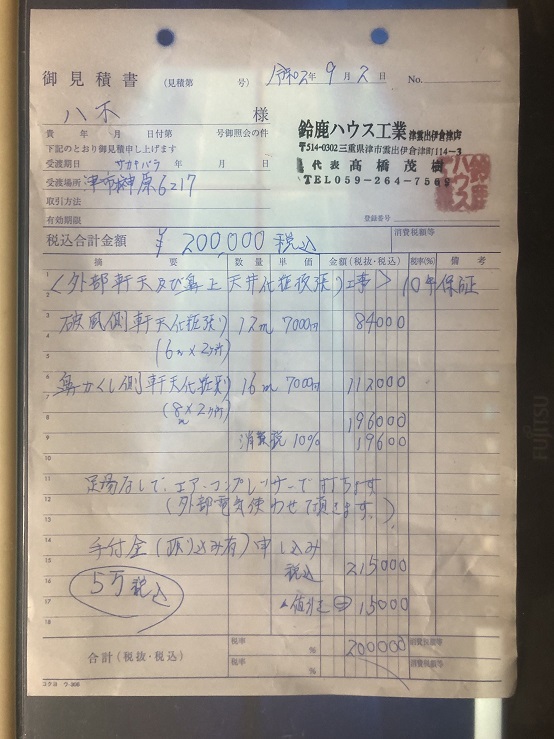 御見積書 (見積第 号) 令和2年 9月 2日 No.
八木 様
貴 年 月 日付第 号御照会の件
下記のとおり御見積申し上げます
鈴鹿ハウス工業 津雲出伊倉津店
〒514-0302 三重県津市雲出伊倉津町114-3
代表 髙橋茂樹
TEL 059-264-7569
鈴鹿ハウス
受渡期日 サカキバラ 年 月 日
受渡場所 津市榊原6217
取引方法
有効期限
登録番号
税込合計金額 ¥200,000 税込 消費税額等
摘要 数量 単価 金額(税抜・税込) 税率(%) 備考
<外部軒天及び鼻上天井化粧板張り工事> 10年保証
破風側軒天化粧張り 12m 7000円 84000
(6m×2ヶ所)
鼻かくし側軒天化粧張り 16m 7000円 112000
(8m×2ヶ所)
196000
消費税 10% 19600
足場なしで、エアーコンプレッサーで打ちます
(外部電気使わせて頂きます。)
手付金(振り込み有)申し込み
税込 215000
5万税込
値引き ⊖ 15000
合計(税抜・税込) 税率 % 200000 消費税額等
税率 % 消費税額等
コクヨ ウ-306
FUJITSU
1
2
3
4
5
6
7
8
9
10
11
12
13
14
15
16
17
18